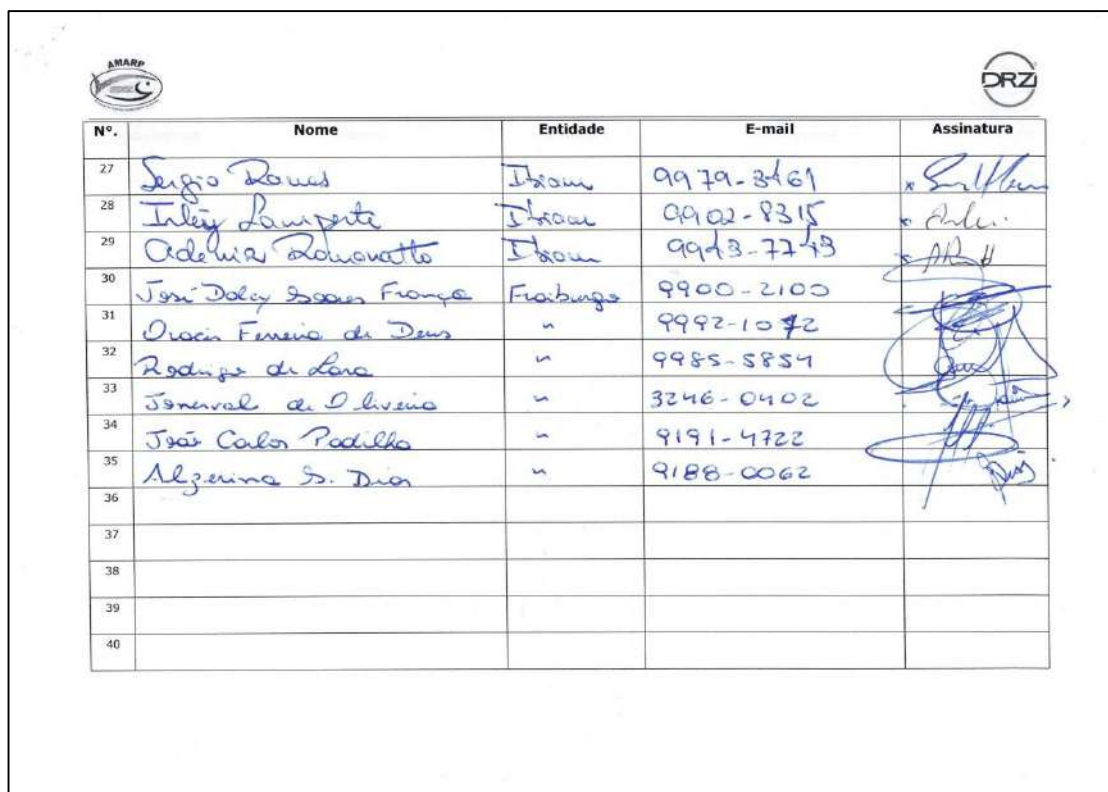 AMARP
DRZ
Nº. Nome Entidade E-mail Assinatura
27 Sergio Ramos Ibiam 9979-3461
28 Inlêy Lamperte Ibiam 9902-8315
29 Ademir Romanatto Ibiam 9943-7743
30 José Dolcy Soares França Fraiburgo 9900-2100
31 Oracir Ferreira de Deus " 9992-1072
32 Rodrigo de Lara " 9985-5854
33 Jonerval de Oliveira " 3246-0402
34 João Carlos Padilha " 9191-4722
35 Alzerina S. Dias " 9188-0062
36
37
38
39
40